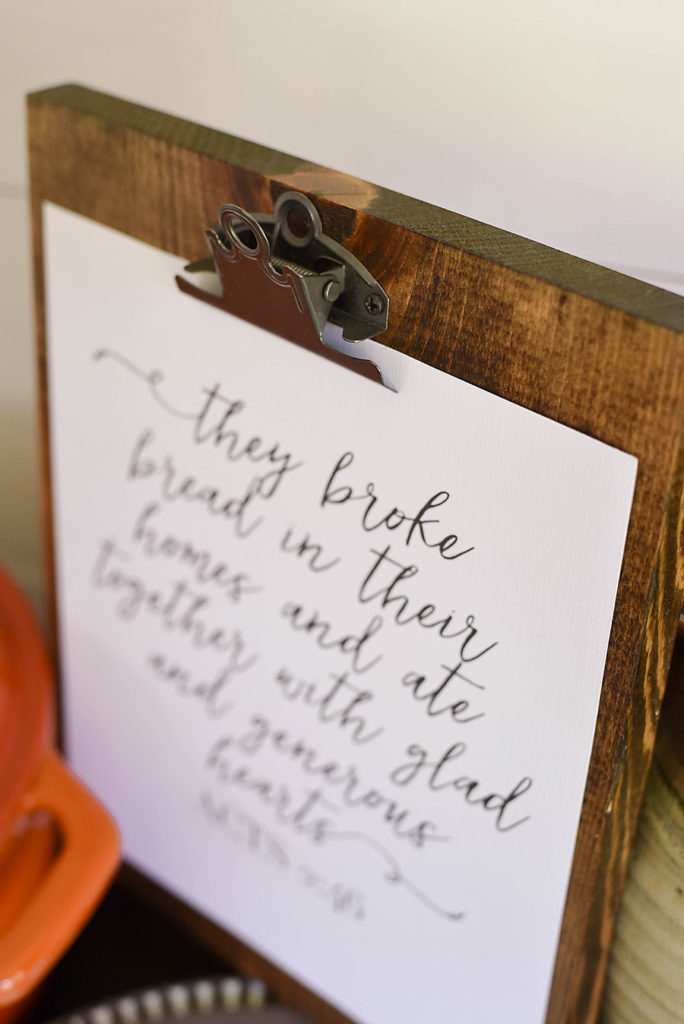 they broke
bread in their
homes and ate
together with glad
and generous
hearts
ACTS 2:46